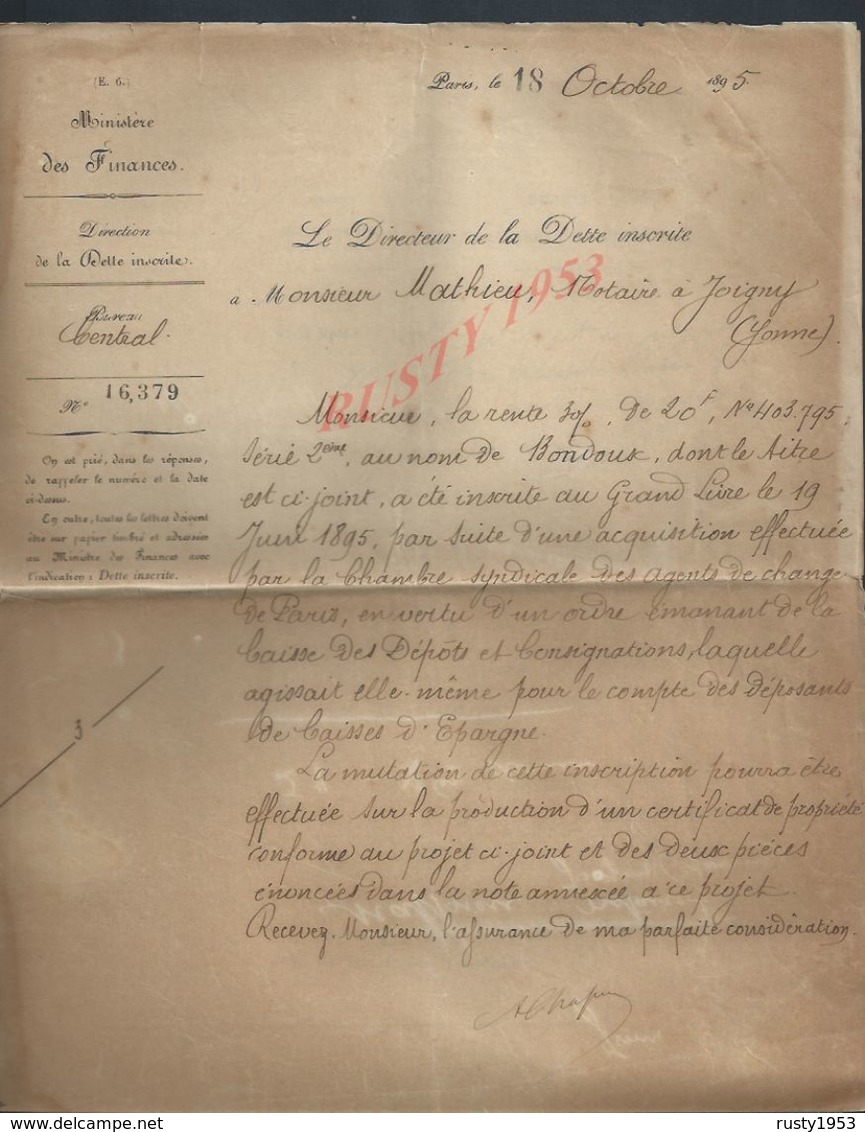 (E. 6.)
Ministère
des Finances.
Direction
de la Dette inscrite.
Bureau
Central.
N° 16,379
On est prié, dans les réponses,
de rappeler le numéro et la date
ci-dessus.
En outre, toutes les lettres doivent
être sur papier timbré et adressées
au Ministre des Finances avec
l'indication : Dette inscrite.
3
Paris, le 18 Octobre 1895.
Le Directeur de la Dette inscrite
a Monsieur Mathieu, Notaire à Joigny
(Yonne).
Monsieur, la rente 3%, de 20f, N° 403.795,
Série 2ème, au nom de Bondoux, dont le titre
est ci-joint, a été inscrite au Grand Livre le 19
Juin 1895, par suite d'une acquisition effectuée
par la Chambre syndicale des agents de change
de Paris, en vertu d'un ordre émanant de la
Caisse des Dépôts et Consignations, laquelle
agissait elle-même pour le compte des déposants
de Caisses d'Epargne.
La mutation de cette inscription pourra être
effectuée sur la production d'un certificat de propriété
conforme au projet ci-joint et des deux pièces
énoncées dans la note annexée à ce projet.
Recevez, Monsieur, l'assurance de ma parfaite considération.
RUSTY 1953
www.delcampe.net
rusty1953